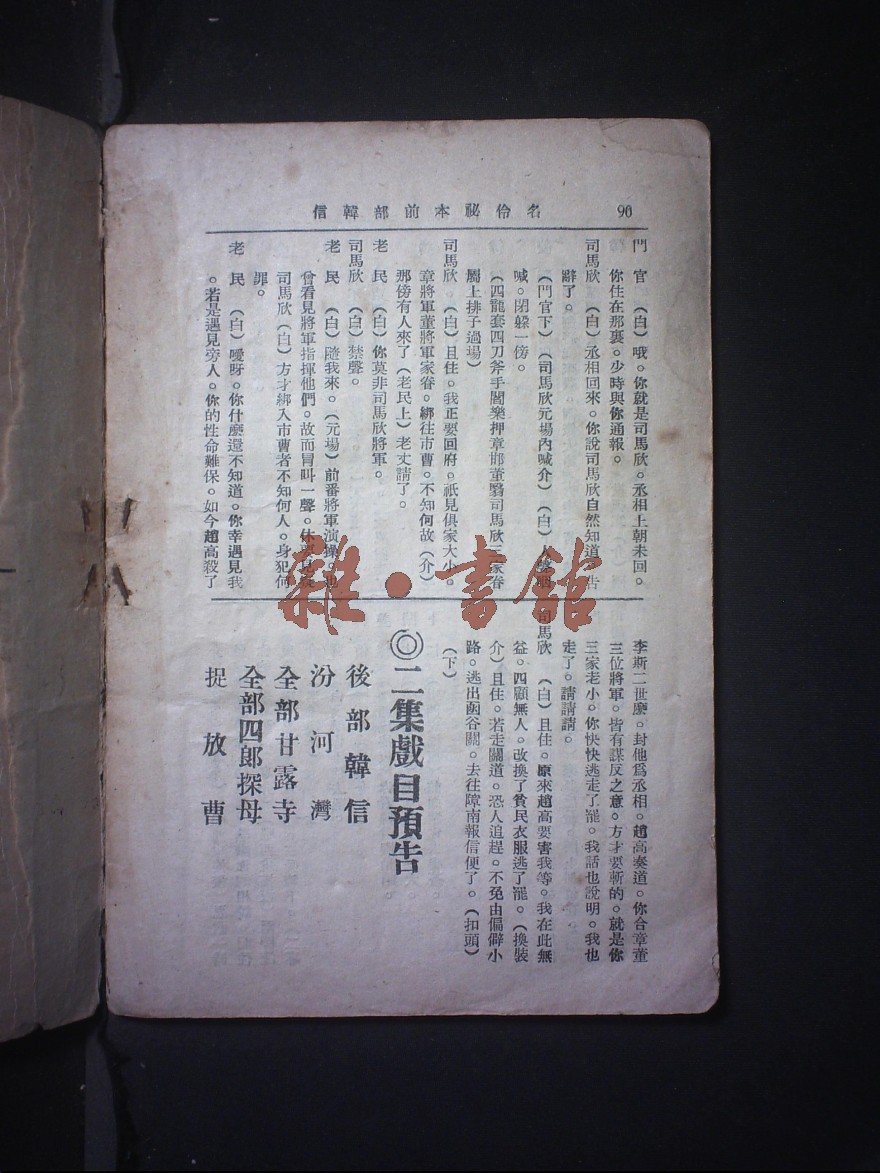 名伶祕本前部韓信
90
門官 （白）哦。你就是司馬欣。丞相上朝未回。
你住在那裏。少時與你通報。
司馬欣 （白）丞相回來。你說司馬欣自然知道。告
辭了。
（門官下）（司馬欣元場內喊介）（白）人聲
喊。閉躱一傍。
（四龍套四刀斧手閻樂押章邯董翳司馬欣三家眷
屬上排子過場）
司馬欣 （白）且住。我正要回府。祇見俱家大小。
章將軍董將軍家眷。綁往市曹。不知何故（介）
那傍有人來了（老民上）老丈請了。
老民 （白）你莫非司馬欣將軍。
司馬欣 （白）禁聲。
老民 （白）隨我來。（元場）前番將軍演操。
曾看見將軍指揮他們。故而冒叫一聲。休要見
司馬欣 （白）方才綁入市曹者不知何人。身犯何
罪。
老民 （白）噯呀。你什麼還不知道。你幸遇見我
。若是遇見旁人。你的性命難保。如今趙高殺了
李斯二世慶。封他爲丞相。趙高奏道。你合章董
三位將軍。皆有謀反之意。方才要斬的。就是你
三家老小。你快快逃走了罷。我話也說明。我也
走了。請請請。
司馬欣 （白）且住。原來趙高要害我等。我在此無
益。四顧無人。改換了貧民衣服逃了罷。（換裝
介）且住。若走關道。恐人追趕。不免由偏僻小
路。逃出函谷關。去往障南報信便了。（扣頭）
（下）
◎二集戲目預告
後部韓信
汾河灣
全部甘露寺
全部四郎探母
捉放曹
雜·書館